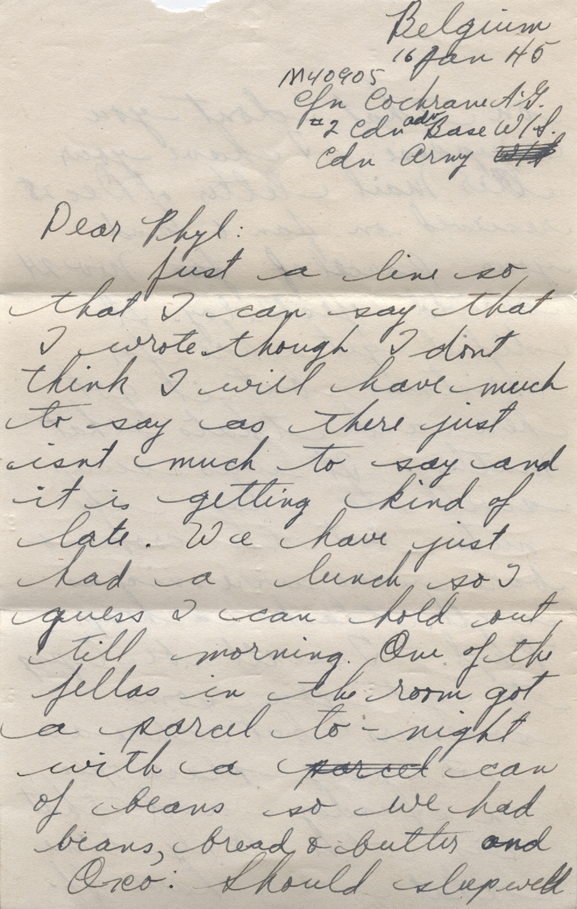 Belgium
16 Jan 45
M40905
Cfn Cochrane A.G.
#2 Cdn adv Base W/S.
Cdn Army
Dear Phyl:
Just a line so
that I can say that
I wrote though I dont
think I will have much
to say as there just
isnt much to say and
it is getting kind of
late. We have just
had a lunch so I
guess I can hold out
till morning. One of the
fellas in the room got
a parcel to-night
with a parcel can
of beans so we had
beans, bread & butter and
Oxo. Should sleep well